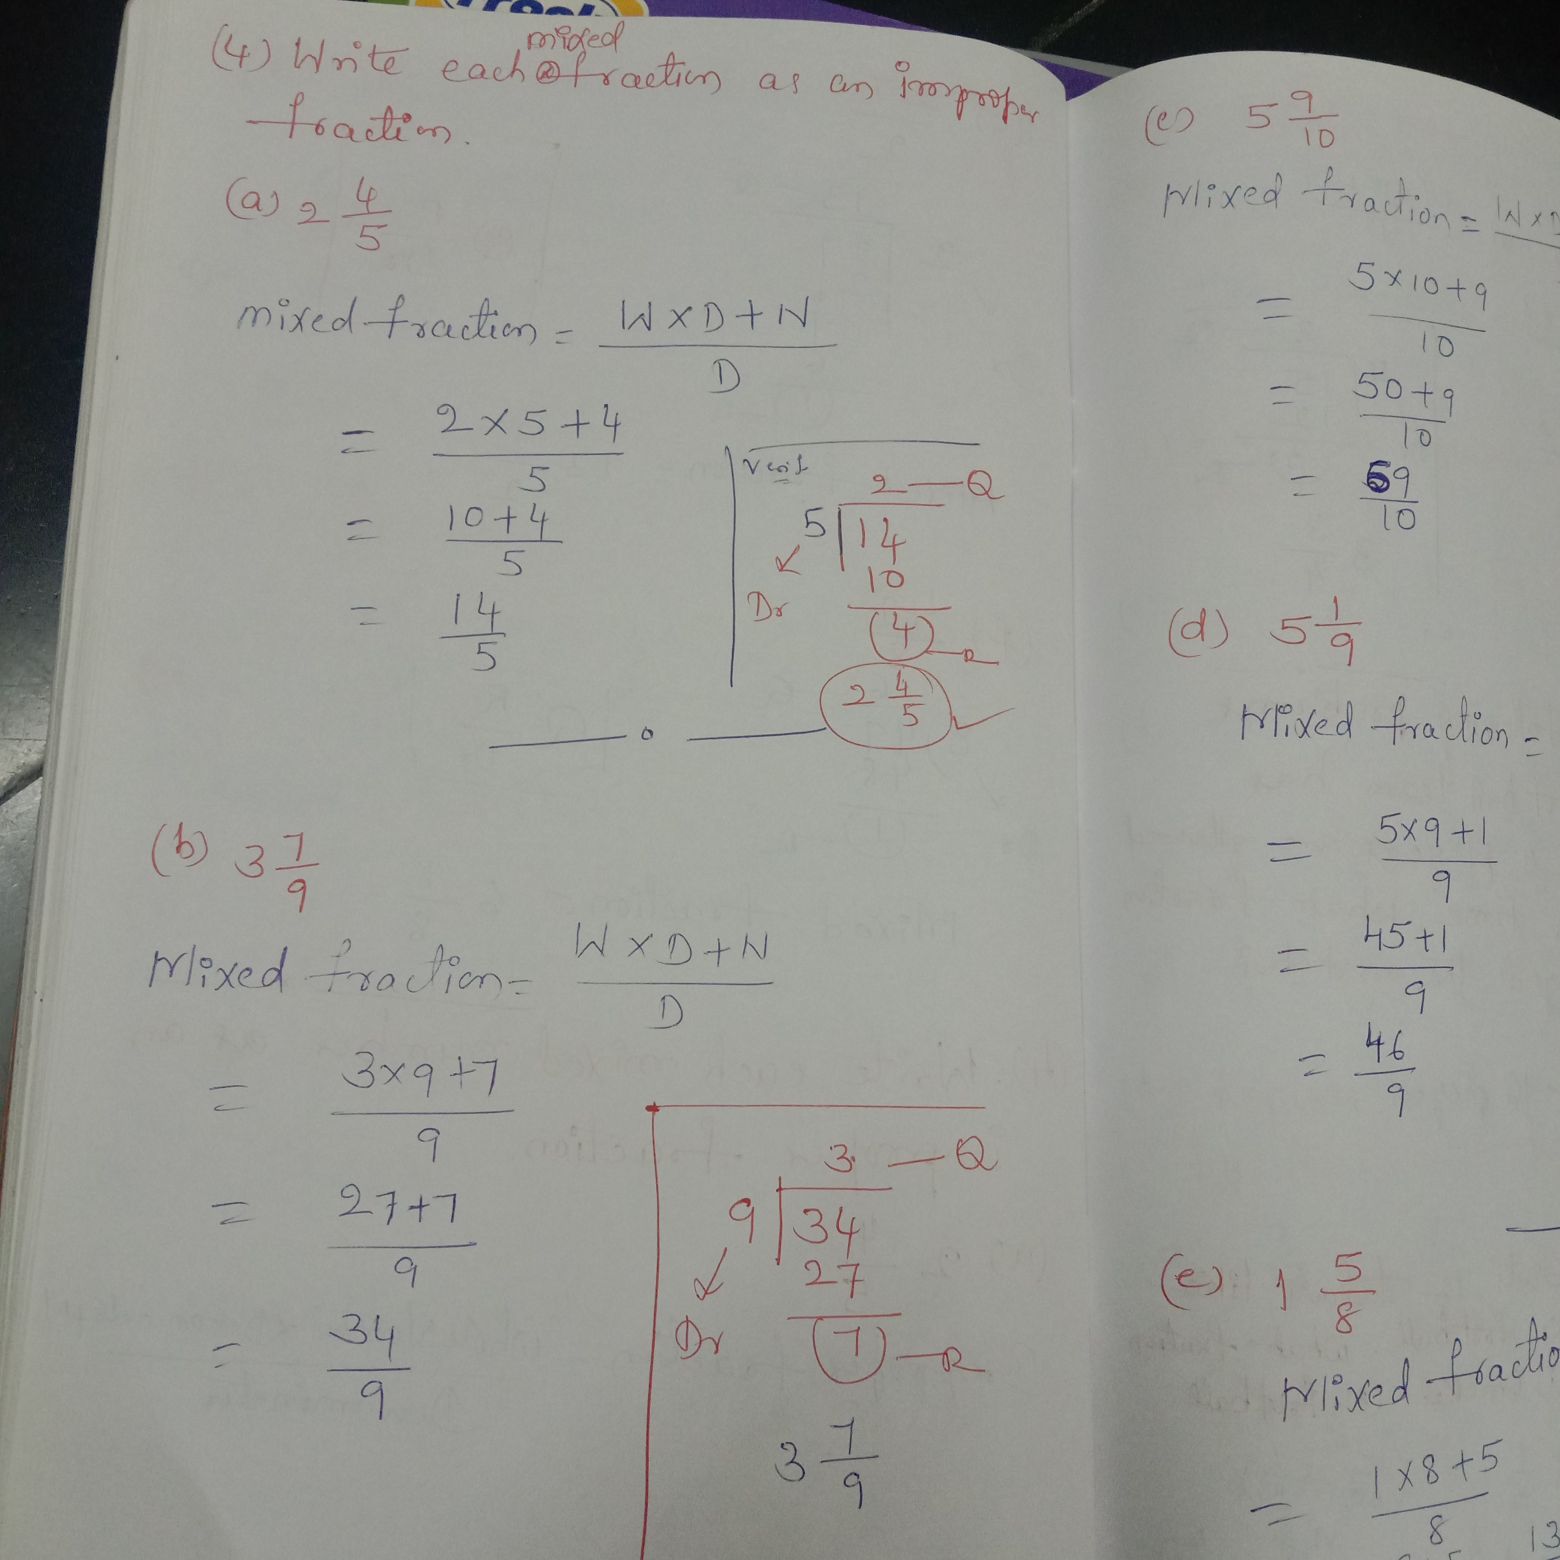 (4) Write each mixed fraction as an improper
fraction.
(a) 2 4/5
mixed fraction = W×D+N / D
= 2×5+4 / 5
= 10+4 / 5
= 14/5
2 — Q
5 14
10
Dr
(4) — R
2 4/5
(b) 3 7/9
Mixed fraction = W×D+N / D
= 3×9+7 / 9
= 27+7 / 9
= 34/9
3 — Q
9 34
27
Dr
(7) — R
3 7/9
(c) 5 9/10
Mixed fraction = W×D
= 5×10+9 / 10
= 50+9 / 10
= 59/10
(d) 5 1/9
Mixed fraction =
= 5×9+1 / 9
= 45+1 / 9
= 46/9
(e) 1 5/8
Mixed fractio
= 1×8+5 / 8
13